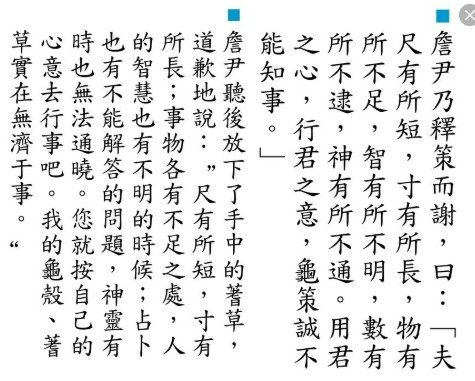 詹尹乃釋策而謝，曰：「夫
尺有所短，寸有所長，物有
所不足，智有所不明，數有
所不逮，神有所不通。用君
之心，行君之意，龜策誠不
能知事。」
詹尹聽後放下了手中的蓍草，
道歉地說：”尺有所短，寸有
所長；事物各有不足之處，人
的智慧也有不明的時候；占卜
也有不能解答的問題，神靈有
時也無法通曉。您就按自己的
心意去行事吧。我的龜殼、蓍
草實在無濟于事。“